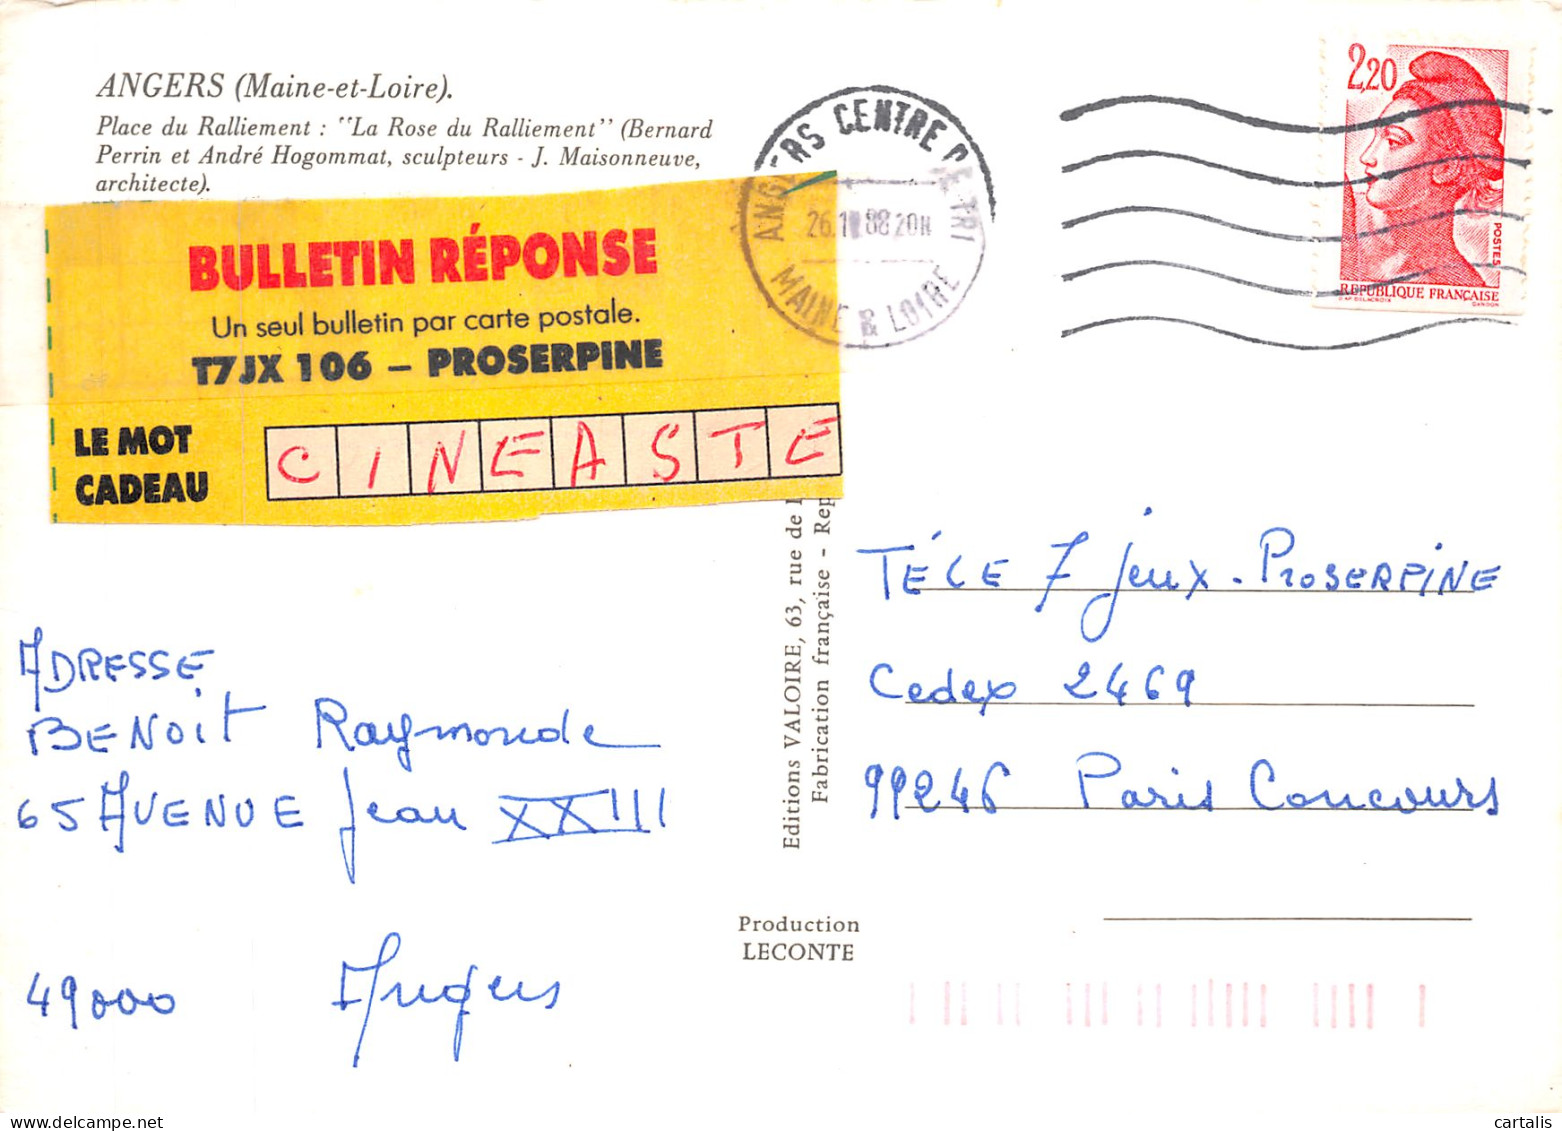 ANGERS (Maine-et-Loire).
Place du Ralliement : "La Rose du Ralliement" (Bernard
Perrin et André Hogommat, sculpteurs - J. Maisonneuve,
architecte).
BULLETIN RÉPONSE
Un seul bulletin par carte postale.
T7JX 106 – PROSERPINE
LE MOT
CADEAU
CINEASTE
ANGERS CENTRE DE TRI
88 20H
MAINE & LOIRE
2,20
POSTES
REPUBLIQUE FRANÇAISE
D'AP DELACROIX
GANDON
ADRESSE
BENOIT Raymonde
65 AVENUE Jean XXIII
49000 Angers
Editions VALOIRE, 63, rue de
Fabrication française -
Production
LECONTE
TÉLE 7 jeux - PROSERPINE
Cedex 2469
99246 Paris Concours
cartalis